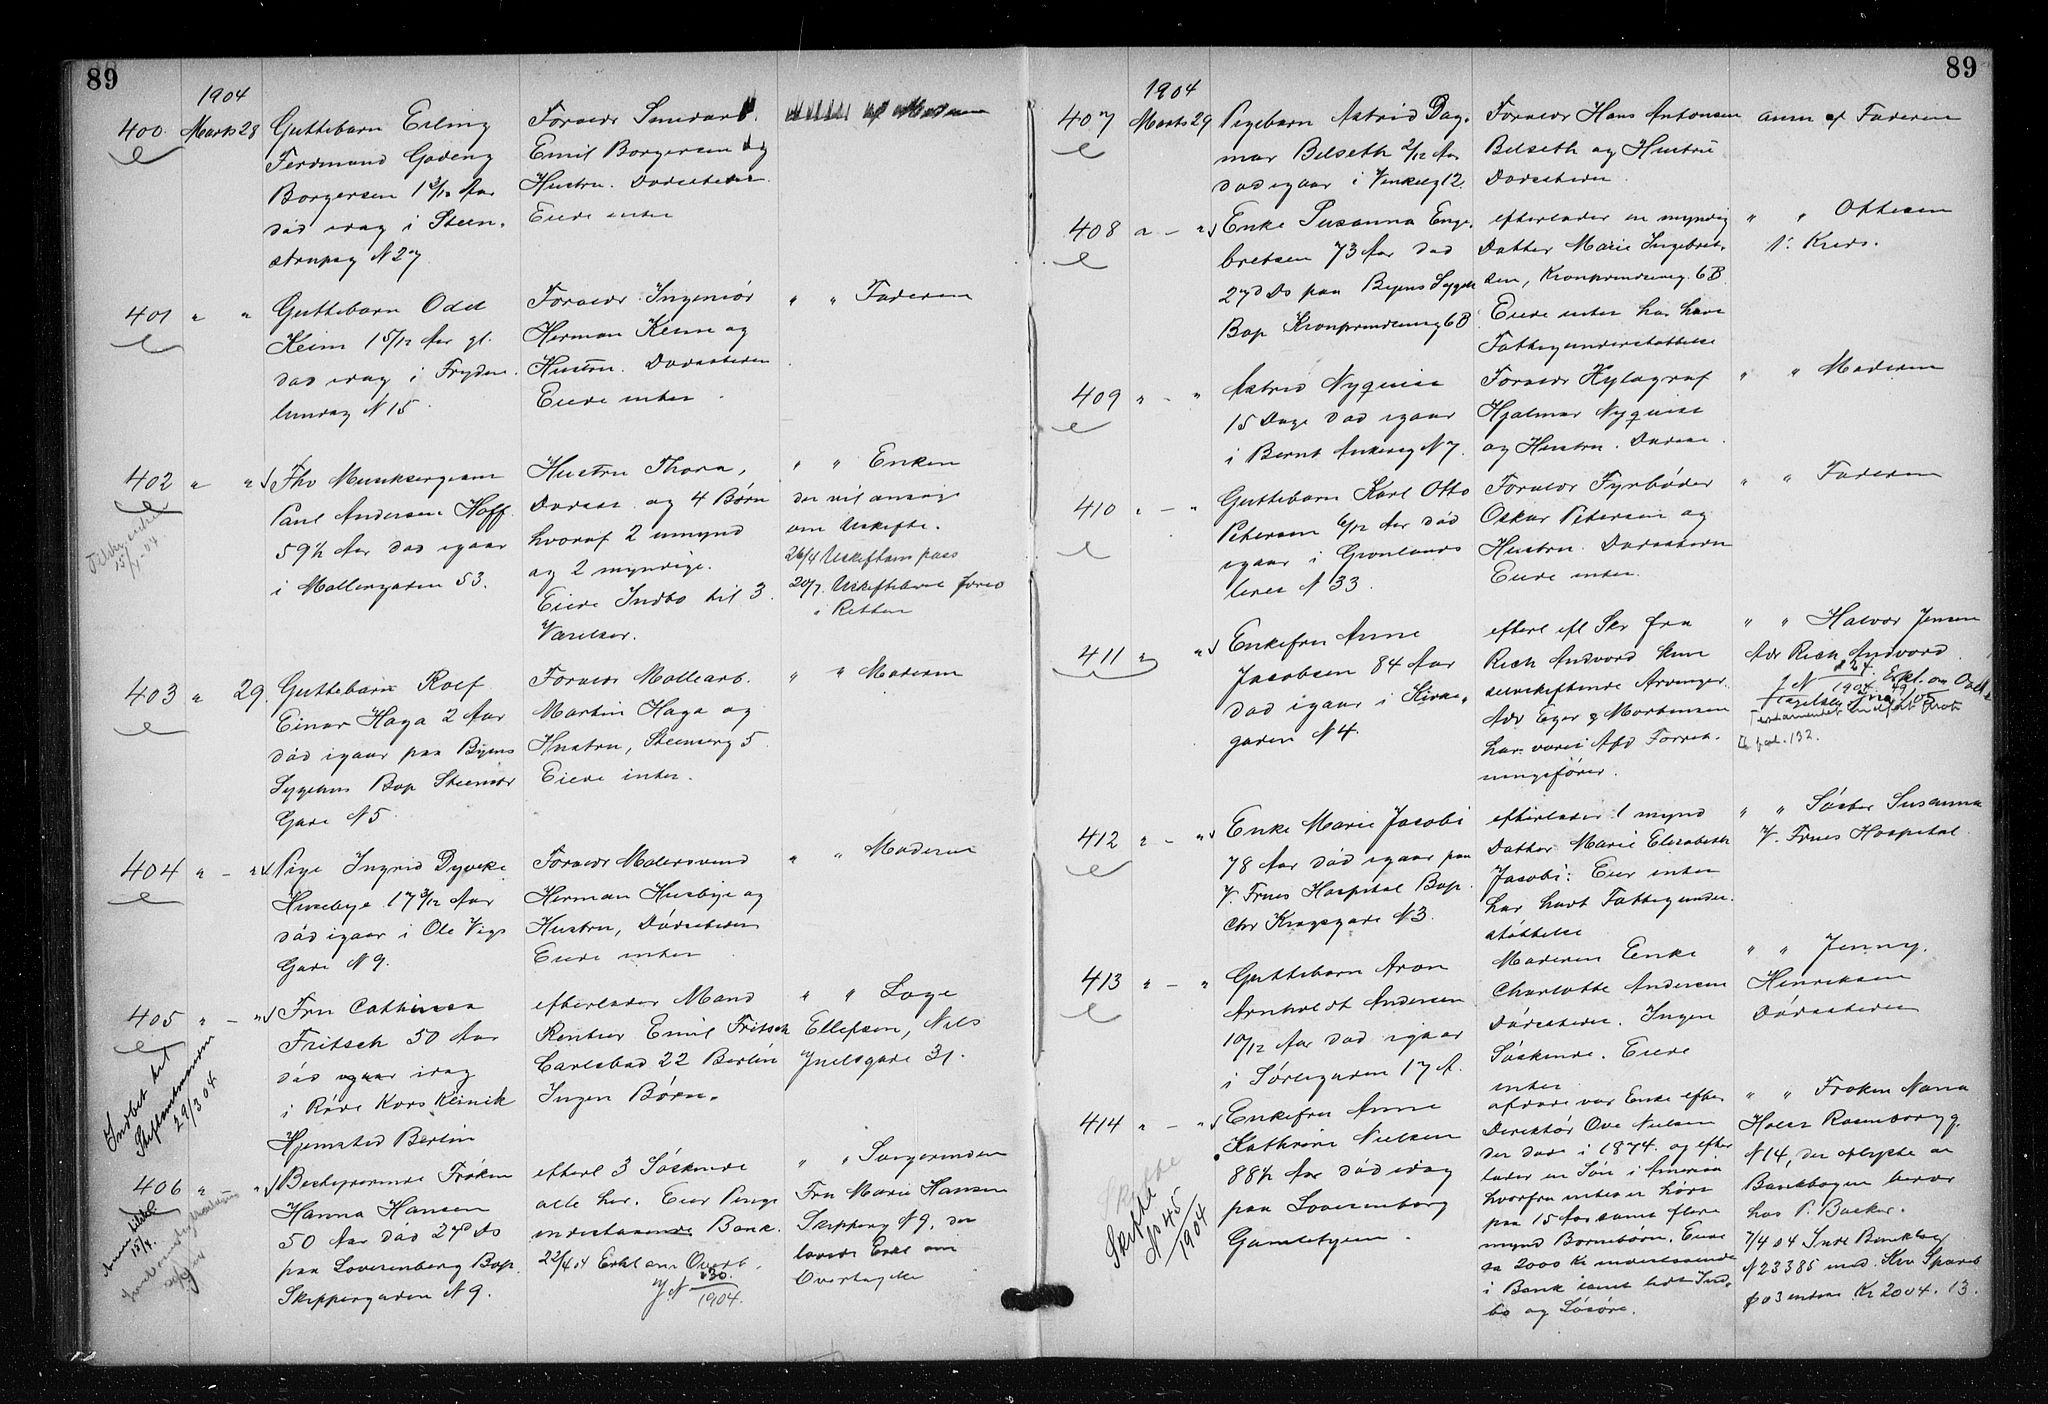 89
1904
400. Marts 28 Guttebarn Erling
Ferdinand Godeng
Borgersen 1 3/12 Aar
død idag i Steen-
strupsg N 27
Forældr Smedarb
Emil Borgersen og
Hustru. Dødsattesten
Eiede intet
af Moderen
401 " " Guttebarn Odd
Keim 1 5/12 Aar gl.
død idag i Fryden-
lundsg N 15
Forældr Ingeniør
Herman Keim og
Hustru. Dødsattesten
Eiede intet
" " Faderen
402 " " Fhv Musiksergeant
Paul Andersen Hoff
59 1/2 Aar død igaar
i Møllergaden 53.
15/4-04
Hustru Thora,
Dødsat. og 4 Børn
hvoraf 2 umynd
og 2 myndige.
Eiede Indbo til 3
Værelser.
" " Enken
der vil ansøge
om Uskifte.
26/4 Uskiftetheds pass
20/7. Uskiftebev. forev
i Retten
403 " 29. Guttebarn Rolf
Einar Haga 2 Aar
død igaar paa Byens
Sygehus Bop Steenser
Gade N 5
Forældr Møllearb.
Martin Haga og
Hustru, Steensg 5
Eiede intet.
" " Moderen
404 " - " Pige Ingrid Dyveke
Husebye 17 3/12 Aar
død igaar i Ole Vigs
Gade N 9.
Forældr Malersvend
Herman Husebye og
Hustru, Dødsattesten
Eiede intet
" " Moderen
405 " - " Fru Cathinca
Fritsch 50 Aar
død igaar idag
i Røde Kors Klinik
Hjemsted Berlin
Indbet til
Skiftemanden
29/3 04
efterlader Mand
Rentier Emil Fritsch
Carlsbad 22 Berlin
Ingen Børn.
" " Læge
Ellefsen, Nils
Juelsgade 31.
406 " " Bestyrerinde Frøken
Hanna Hansen
50 Aar død 27d Ds
paa Lovisenberg Bop.
Skippergaden N 9.
15/4.
efterl 3 Søskende
alle her. Eier Penge
indestaaende Bank.
22/4 04 Erkl om Overt.
J N 130/1904.
" " Sangerinden
Fru Marie Hansen
Skipperg N 9, der
lavede Erkl om
Overtagelse
89
1904
407 Marts 29 Pigebarn Astrid Dag-
mar Belseth 2/12 Aar
død igaar i Vinkelg 12.
Forældr Hans Antonsen
Belseth og Hustru
Dødsattesten
anm af Faderen
408 " - " Enke Susanna Enge-
bretsen 73 Aar død
27d Ds paa Byens Sygeh
Bop Kronprindsensg 6B
efterlader en myndig
Datter Marie Ingebret-
sen, Kronprindsensg. 6B.
Eiede intet har havt
Fattigunderstøttelse
" " Ottesen
1: Kreds.
409 " - " Astrid Nyquist
15 Dage død igaar
i Bernt Ankersg N 7.
Forældr Xylograf
Hjalmar Nyquist
og Hustru. Dødsat.
" " Moderen
410 " - " Guttebarn Karl Otto
Petersen 6/12 Aar død
igaar i Grønlands
leret N 33.
Forældr Fyrbøder
Oskar Petersen og
Hustru. Dødsattesten
Eiede intet.
" " Faderen
411 " " Enkefru Anne
Jacobsen 84 Aar
død igaar i Kirke-
gaden N 4.
efterl efl Skr fra
Rich Andvord kun
selvskiftende Arvinger.
Adv Eger & Mortensen
har været Afd Forret-
ningsfører.
" " Halvor Jensen
Adr Rich Andvord.
J N 124/1904 Erkl. om
fol. 132.
412 " - " Enke Marie Jacobi
78 Aar død igaar paa
V. Frues Hospital Bop.
Chr Krogsgade N 3.
efterlader 1 mynd
Datter Marie Elisabeth
Jacobi. Eier intet
har havt Fattigunder-
støttelse
" " Søster Susanna
V. Frues Hospital.
413 " - " Guttebarn Aron
Arnholdt Andersen
10/12 Aar død igaar
i Sørligaden 17 A.
Moderen Enke
Charlotte Andersen
Dødsattesten. Ingen
Søskende. Eiede
intet
" " Jenny
Henriksen
Dødsattesten
414 " - " Enkefru Anne
Kathrine Nielsen
88 1/2 Aar død idag
paa Lovisenberg
Gamlehjem.
Skifte
No 45/1904
afdøde var Enke efter
Direktør Ove Nielsen
der døde i 1874 og efter
lader en Søn i Amerika
hvorfra intet er hørt
paa 15 Aar samt flere
mynd Børnebørn. Eiede
ca 2000 Kr indestaaende
i Bank samt lidt Ind-
bo og Løsøre.
" " Frøken Nana
Holst Rosenborgg.
N 14, der oplyste at
Bankbogen beror
hos P. Backer.
7/4 04 Indl Bankbog
N 23385 med Chra Spareb
paa indest Kr 2004.13.